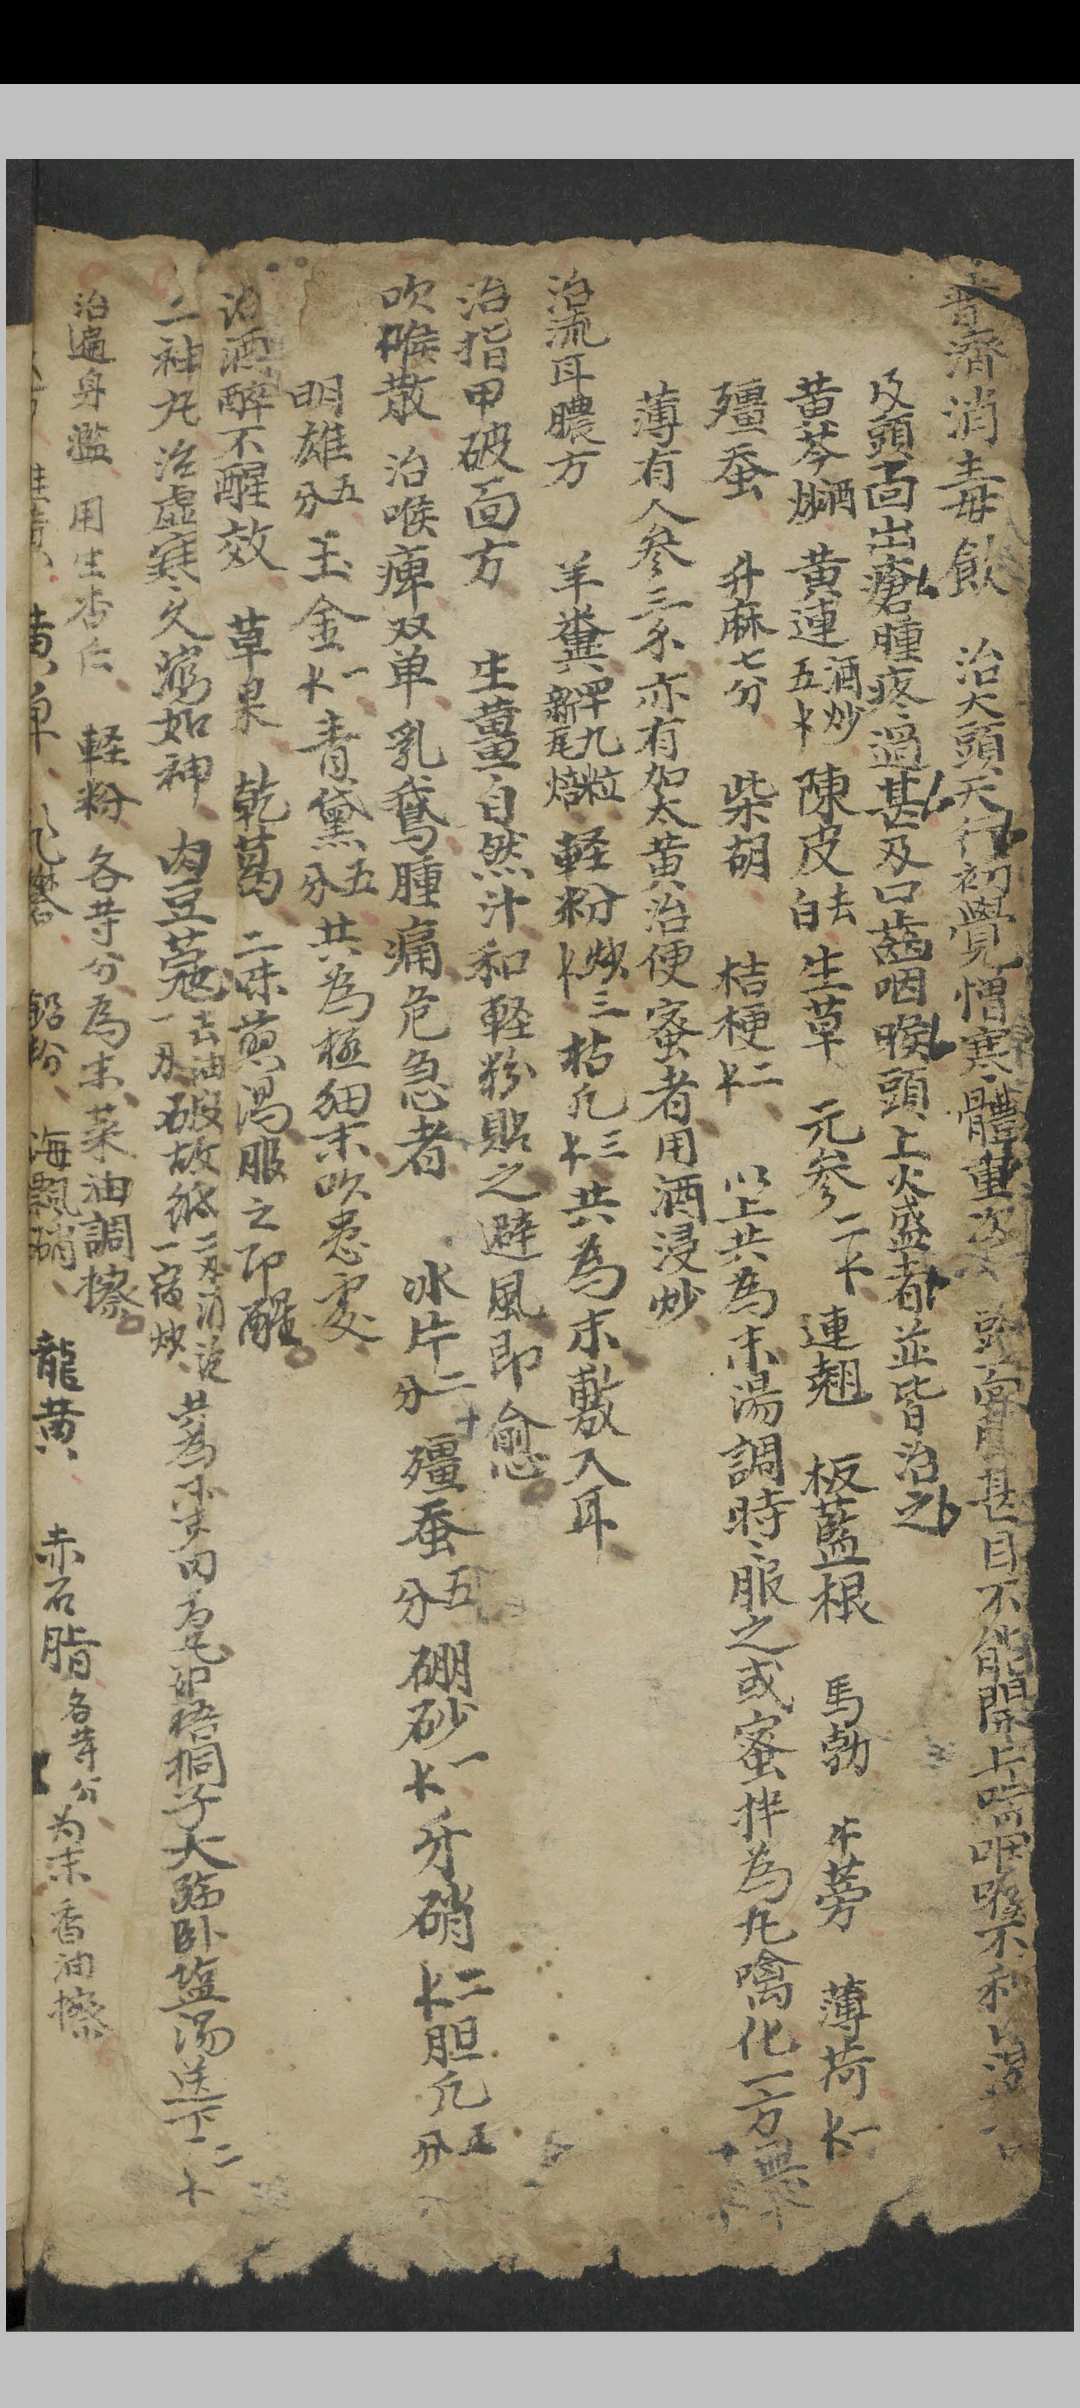 普濟消毒飲 治大頭天行初覺憎寒體重次 頭面腫甚目不能開上喘咽喉不利
及頭面出瘡腫疼過甚及口齒咽喉頭上火盛者並皆治之
黄芩酒炒 黄連酒炒五 陳皮去白 生草 元參二 連翹 板藍根 馬勃 牛蒡 薄荷一
殭蚕 升麻七分 柴胡 桔梗二 以上共為末湯調時服之或蜜拌為丸噙化一方無
薄有人參三 亦有加大黄治便蜜者用酒浸炒
治流耳膿方 羊糞 九粒新瓦焙 軽粉炒 三 枯凡三 共為末敷入耳
治指甲破面方 生薑自然汁和軽粉貼之避風即愈
吹喉散 治喉痺双单乳鵞腫痛危急者 冰片二分 殭蚕五分 硼砂一 牙硝二 胆凡五分
明雄五分 玉金一 青黛五分 共為極細末吹患處
治酒醉不醒效 草果 乾葛 二味煎湯服之即醒
二神丸治虚寒久瀉如神 肉豆蔻去油一 破故紙二 一宿炒 共為 梧桐子大臨卧塩湯送下二
治遍身濫 用生杏仁 軽粉 各等分為末菜油調擦
黄 鉛粉 海螵硝 龍黄 赤石脂各等分为末香油擦